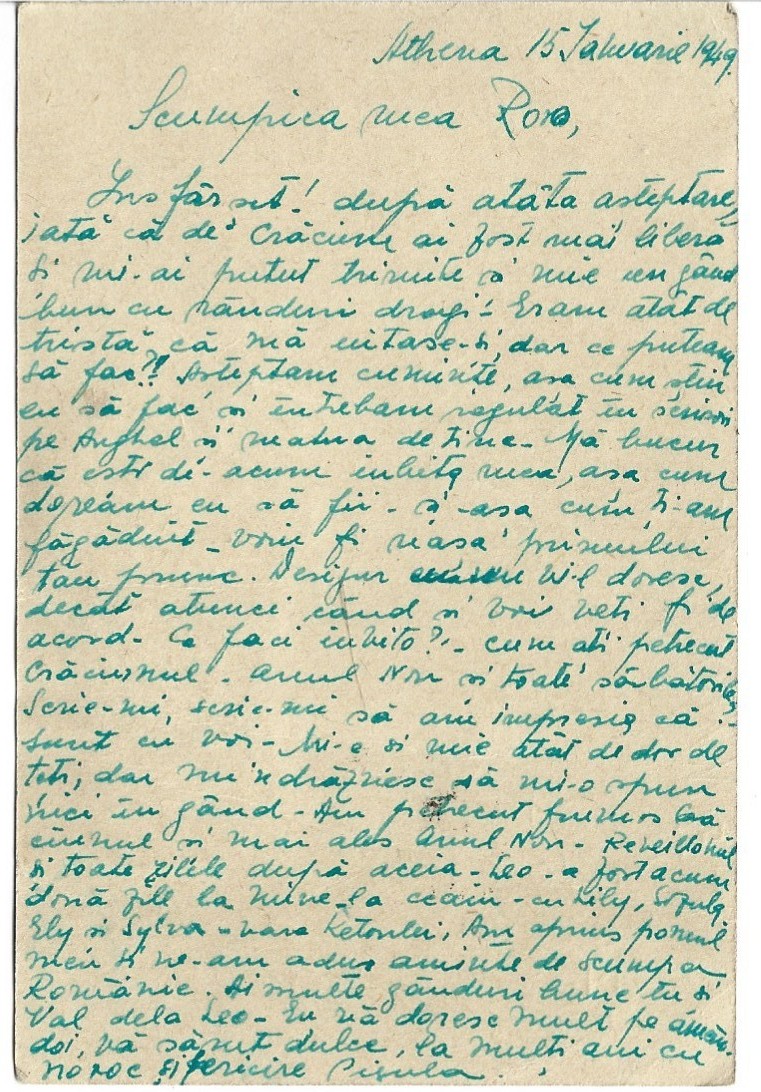 Athena 15 Ianuarie 1949.
Scumpica mea Rora,
Însfârșit! după atâta așteptare,
iată că de Crăciun ai fost mai liberă
și mi-ai putut trimite și mie un gând
bun cu rânduri dragi! Eram atât de
tristă, că mă uitase-și, dar ce puteam
să fac?! Așteptam cuminte, așa cum știu
eu să fac și întrebam regulat în scrisori
pe Anghel și neatna de tine - Mă bucur
că ești de-acum iubita mea, așa cum
doream eu să fii - și-așa cum ți-am
făgăduit - voiu fi nașa primului
tău prunc. Desigur nu vi-l doresc,
decât atunci când și voi veți fi de
acord - Ce faci iubito? - cum ați petrecut
Crăciunul - Anul Nou și toate sărbătorile,
Scrie-mi, scrie-mi să am impresia că
sunt cu voi - Mi-e și mie atât de dor de
toți, dar nu'ndrăznesc să mi-o spun
nici în gând - Am petrecut frumos Cră
ciunul și mai ales Anul Nou - Reveillonul
și toate zilele după aceia - Leo - a fost acum
două zile la mine - la ceaiu - cu Lily,
Ely și Sylva - vara Ketoulei, Am aprins pomul
meu și ne-am adus aminte de scumpa
Românie. Ai multe gânduri bune tu și
Val dela Leo - Eu vă doresc mult pe amân-
doi, vă sărut dulce, la mulți ani cu
noroc și fericire Pisula.